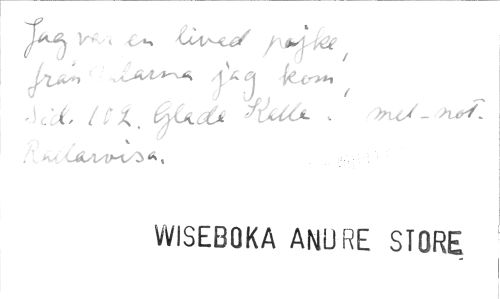 Jag var en lived pojke,
från Dalarna jag kom,
Sid. 102. Glade Kalle. met-not.
Rallarvisa.
WISEBOKA ANDRE STORE